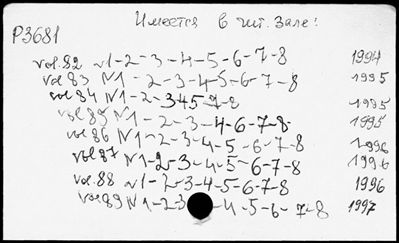 Имеется в чит. зале:
P3681
vol. 82 №1-2-3-4-5-6-7-8 1994
vol 83 №1-2-3-4-5-6-7-8 1995
vol 84 №1-2-345-7-8 1995
vol 85 №1-2-3-4-6-7-8- 1995
vol 86 №1-2-3-4-5-6-7-8 1996
vol 87 №1-2-3-4-5-6-7-8 1996
vol. 88 №1-2-3-4-5-6-7-8 1996
vol 89 №1-2-3-4-5-6-7-8 1997